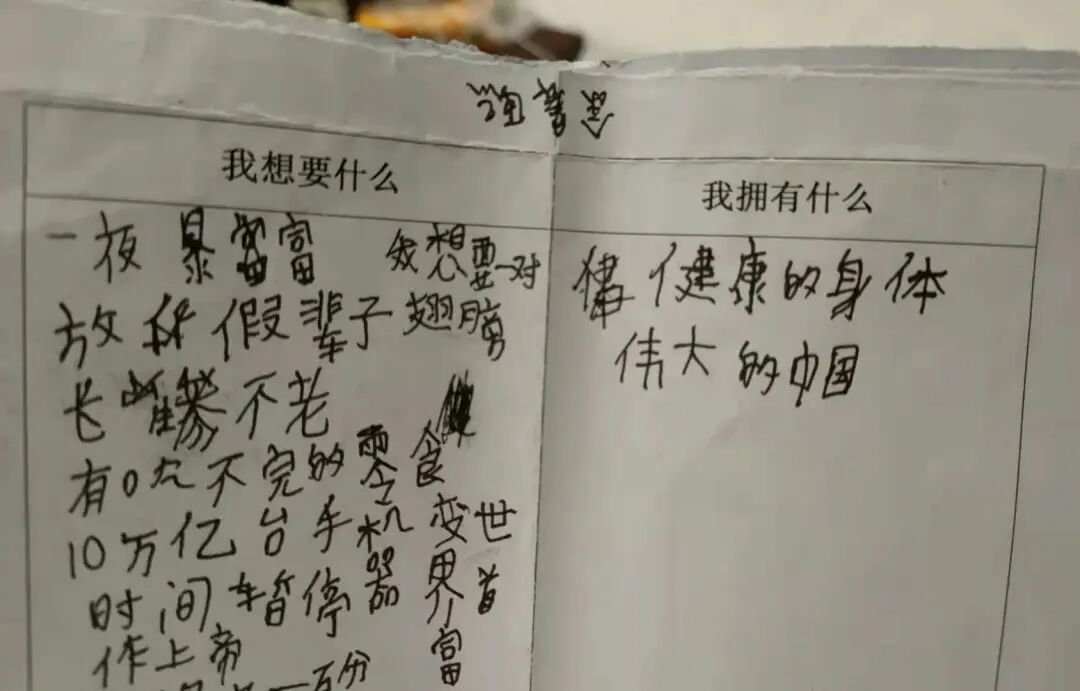 我想要什么
一夜暴富富
放假一辈子
长生不老
有吃不完的零食
10万亿台手机
时间暂停器
作上帝
一百分
我想要一对
翅膀
变世
界首
富
我拥有什么
健康的身体
伟大的中国